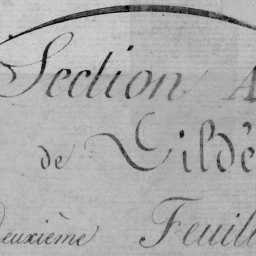 Section A
de Lildé
Deuxième Feuill